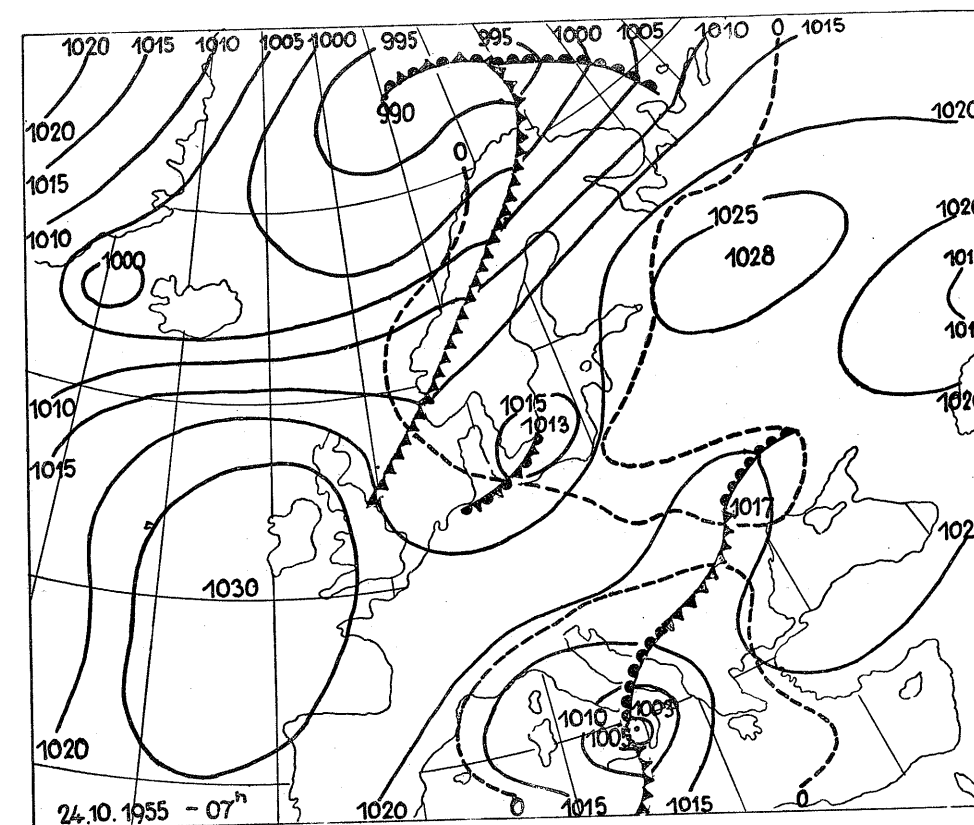 1020 1015 1010 1005 1000 995 995 1000 1005 1010 0 1015
990
1020
1020
0
1015
1025
1010
1028
1000
1010
1015
1013
1015
1017
1030
1003
1010
1005
1020
24.10.1955 - 07h
1020 0 1015 1015 0